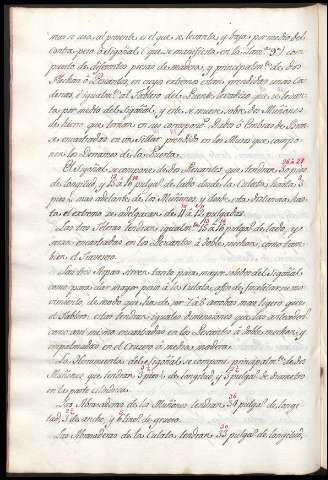 mas se usa, al presente es el que se levanta, y baja por medio del
contra-peso ó Sigoñal, (que se manifiesta en la Lamª 9ª) com-
puesto de diferentes piezas de madera, y principalmte de dos
Flechas ó Levantes, en cuyo extremo estan prendidas unas Ca-
denas, é igualmte al Tablero del Puente levadizo que se levan-
ta por medio del Sigoñal, y este se mueve sobre dos Muñones
de hierro que tornan en su correspond. Dados ó Tortera de Bron-
ze encontradas en un Sillar prendido en los Muros que compo-
nen los Derramos de la Puerta.
26 á 28
El Sigoñal se compone de dos Levantes que tendrán 30 pies
de longitud, y 13 á 14 pulgs. de lado desde la Culata, hasta 3
pies mas adelante de los Muñones, y desde esta distancia has-
ta el extremo se adelgazan de 11 á 12 pulgadas.
Las tres Teleras tendrán igualmte 13 á 14 pulgs. de lado, y
seran encontradas en los Levantes á doble mechon, como tam-
bien el Travesero.
Las tres Aspas sirven tanto para mayor solidez del Sigoñal
como para dar mayor peso á la Culata, afin de facilitar su mo-
vimiento, de modo que sea de por 7 á 8 arrobas mas ligero que
el Tablero. estas tendrán iguales dimensiones que las antecedtes
como assi mismo encontradas en los Levantes á doble mechon, y
empalmadas en el Crucero á media madera.
La Herramienta del Sigoñal se compone principalmte de dos
Muñones que tendrán 3 pies de longitud, y 3 pulgs. de diametro
en la parte cilindrica.
Las Abrazaderas de los Muñones tendrán 34 pulgs. de longi-
tud, 3 de ancho, y 6 lins. de grueso.
Las Abrazaderas de la Culata tendrán 33 pulgs. de longitud,